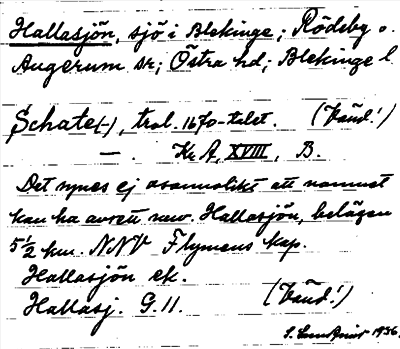 Hallasjön, sjö i Blekinge; Rödeby o.
Augerum sr; Östra hd; Blekinge l.
Schate(-), trol. 1670-talet. (Känd!)
— . Kr A, XVIII, B.
Det synes ej osannolikt att namnet
kan ha avsett nuv. Hallasjön, belägen
5½ km. NNV Flymens kap.
Hallasjön ek.
Hallasj. G. 11. (Känd!)
1936.